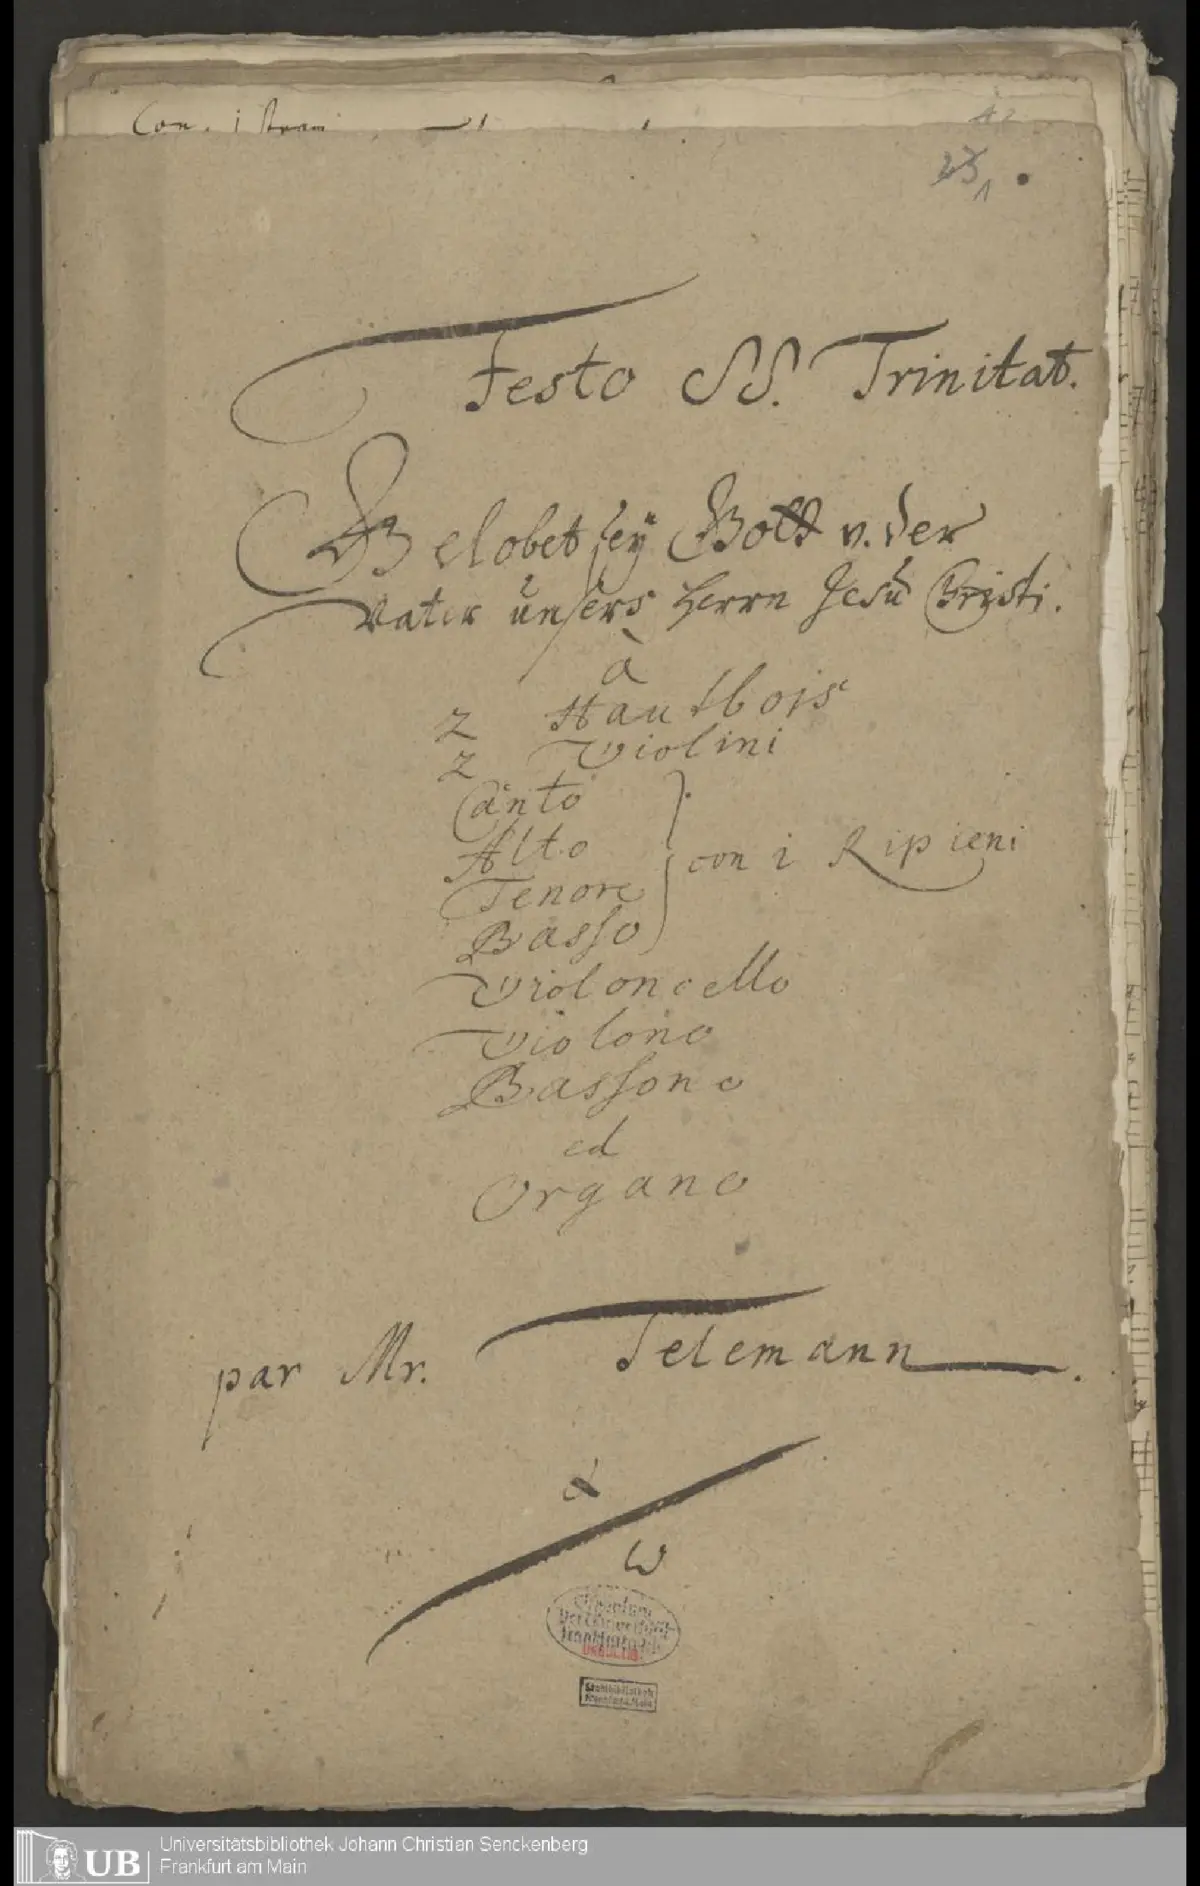 23
1
Festo SS. Trinitat.
Gelobet seÿ Gott v. der
Vater unsers Herrn Jesu Christi.
à
2 Hautbois
2 Violini
Canto
Alto
Tenore
Basso
con i Ripieni
Violoncello
Violono
Bassono
ed
Organo
par Mr. Telemann.
α
ω
Stadtbibliothek
Frankfurt a. Main
UB
Universitätsbibliothek Johann Christian Senckenberg
Frankfurt am Main